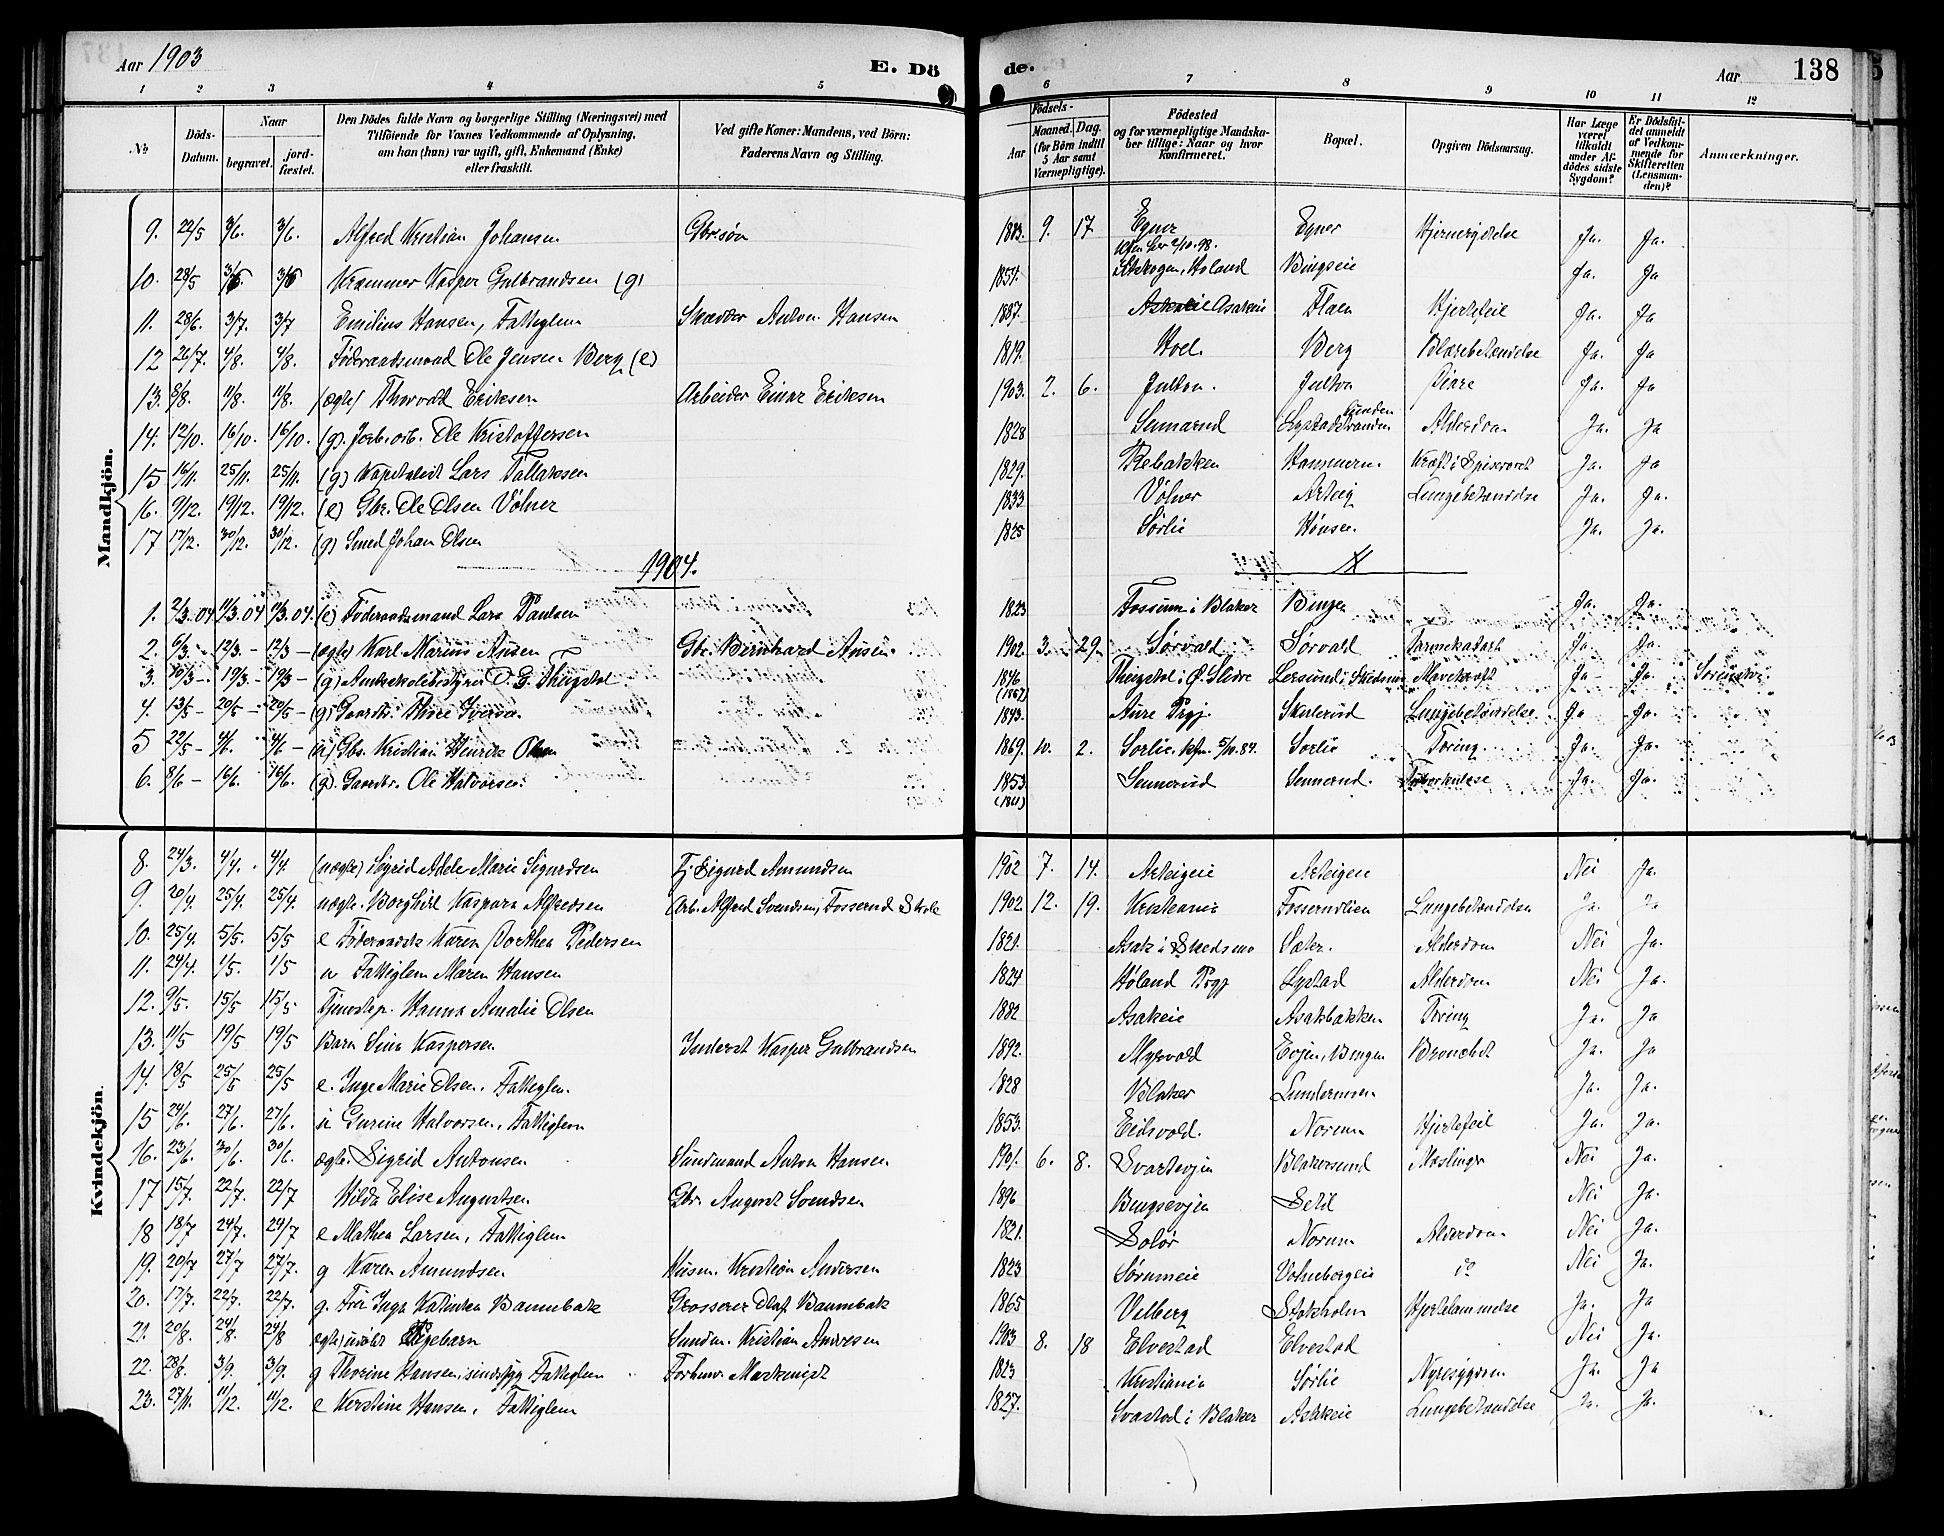 Aar 1903
E. Dö
de.
Aar 138
1 2 3 4 5 6 7 8 9 10 11 12
No
Döds-Datum.
Naar
begravet.
jord-fæstet.
Den Dödes fulde Navn og borgerlige Stilling (Næringsvei) med
Tilföiende for Voxnes Vedkommende af Oplysning,
om han (hun) var ugift, gift, Enkemand (Enke)
eller fraskilt.
Ved gifte Koner: Mandens, ved Börn:
Faderens Navn og Stilling.
Födsels-
Aar
Maaned. Dag.
(for Börn indtil
5 Aar samt
Værnepligtige).
Födested
og for værnepligtige Mandska-
ber tillige: Naar og hvor
konfirmeret.
Bopæl.
Opgiven Dödsaarsag.
Har Læge
været
tilkaldt
under Af-
dödes sidste
Sygdom?
Er Dödsfal-
det anmeldt
af Vedkom-
mende for
Skifteretten
(Lensman-
den)?
Anmærkninger.
Mandkjön.
9. 22/5 3/6. 3/6. Alfred Kristian Johansen Gbr.søn 1883. 9. 17 Egner Egner Ja. Ja.
10. 28/5 3/6 3/6 Kasper Gulbrandsen (g) 1854. Høland Bingseie Ja. Ja
11. 28/6. 3/7. 3/7 Emilius Hansen, Fattiglem Skrædder Anton Hansen 1887. Asakeie Flaen Hjertefeil Ja. Ja
12 26/7. 4/8. 4/8. Føderaadsmand Ole Jensen Berg (e) 1819. Hoel Berg Blærebetændelse Ja. Ja
13. 8/8. 11/8. 11/8. (ægte) Thorvald Eriksen Arbeider Einar Eriksen 1903. 2. 6. Julton. Julton Diare Ja. Ja
14. 12/10. 16/10. 16/10. (g). Ole Kristoffersen 1828 Sunnarud Alderdom Ja. Ja
15 16/11. 25/11. 25/11. (g) Kapitalist Lars Tallaksen 1829. Rebakken Hammeren. Kræft i Spiserøret Ja. Ja
16. 9/12. 19/12. 19/12. (e) Gbr. Ole Olsen Vølner 1833 Vølner Arteig Lungebetændelse Ja. Ja.
17 17/12. 30/12. 30/12. (g) Smed Johan Olsen 1825 Sørlie Hønsen. Ja. Ja.
1904.
1. 2/3.04 11/3.04 11/3.04. (e) Føderaadsmand Lars Paulsen 1823 Fossum i Blaker Bingen Ja. Ja.
2. 6/3. - 12/3. - 12/3 - (ægte) Karl Marius Ansen Gbr. Bernhard Ansen. 1902 3. 29. Sørvald Sørvald Tarmekatarh Ja - Ja.
3. 10/3 - 19/3. - 19/3 - (g) Amtsskolebestyrer O. G. Thingstol 1846 (1867) Thingstol i Ø. Slidre Lersund i Skedsmo Mavekræft Ja - Ja.
4. 13/5 - 20/5 - 20/5 - (g) Gaardbr. Thore Iversen 1843. Aure Prgj. Skulerud Lungebetændelse Ja Ja.
5 22/5 - 4/6. 4/6 - (u) Gbr. Kristian Henrik Olsen 1869. 10. 2. Sørlie. kfm. 5/10.84. Sørlie Tæring. Ja. Ja.
6. 8/6 - 16/6. 16/6. (g). Gaardbr. Ole Halvorsen. 1853. Sunnarud Sunnarud. Tuberkulose Ja. Ja.
Kvindekjön.
8. 24/3. 4/4. 4/4. (uægte) Sigrid Adele Marie Sigurdsen Tj Sigurd Amundsen 1902 7. 14. Arteigeie Arteigeie Nei Ja.
9. 20/4. 25/4. 25/4. uægte. Borghild Kaspara Alfredsen Arb. Alfred Svendsen, Fosserud Skole 1902 12. 19. Kristiania Fosserudlien Lungebetændelse Ja. Ja
10. 25/4. 5/5. 5/5 e Føderaadsk Karen Dorthea Pedersen 1821. Asak i Skedsmo Sæter. Alderdom Nei Ja.
11. 24/4. 1/5. 1/5 u Fattiglem Maren Hansen 1824 Høland Prgj Lystad Alderdom Nei Ja.
12. 9/5. 15/5 15/5. Tjenestep. Hanna Amalie Olsen 1882 Asakeie Asakbakken Tæring Ja. Ja
13. 11/5 19/5 19/5 Barn Lina Kaspersen Inderst Kasper Gulbrandsen 1892. Myrvold Evjen, Bingen Bronchit Ja. Ja
14. 18/5 25/5 25/5 e. Inge Marie Olsen, Fattiglem. 1828 Blaker Lundermoen Ja. Ja.
15 24/6. 27/6. 27/6. u Gurine Halvorsen, Fattiglem 1853. Eidsvold. Norum Hjertefeil Ja. Ja.
16. 23/6. 30/6. 30/6. ægte. Sigrid Antonsen Sundmand Anton Hansen 1901. 6. 8. Svartevjen Blakersund Mæslinger Nei Ja.
17 15/7. 22/7. 22/7 Hilda Elise Augustsen Gbr. August Svendsen 1896 Bingsevjen Sætil Nei Ja.
18 18/7 24/7. 24/7 e Mathea Larsen, Fattiglem 1821. Solør Norum Alderdom Nei Ja.
19. 20/7 27/7 27/7. g Karen Amundsen Husm. Kristian Andersen 1823 Sørumeie Volnebergeie do Nei Ja.
20. 17/7. 22/7. 22/7. g. Fru Inga Katinka Baumbak Grosserer Olaf Baumbak 1865 Velberg Stokholm Hjertelammelse Ja. Ja
21. 20/8. 24/8. 24/8 ægte, udøbt Pigebarn Sundm. Kristian Andersen 1903 8. 18 Elvestad Elvestad Nei Ja.
22. 28/8. 3/9. 3/9. g Thorine Hansen, sindssyg Fattiglem Forhenv. Maskinist 1823 Kristiania Sørlie Nyresygdom Ja. Ja
23. 27/11. 11/12. 11/12. e Kirstine Hansen, Fattiglem 1827. Svastad i Blaker Asakeie Lungebetændelse Ja. Ja.